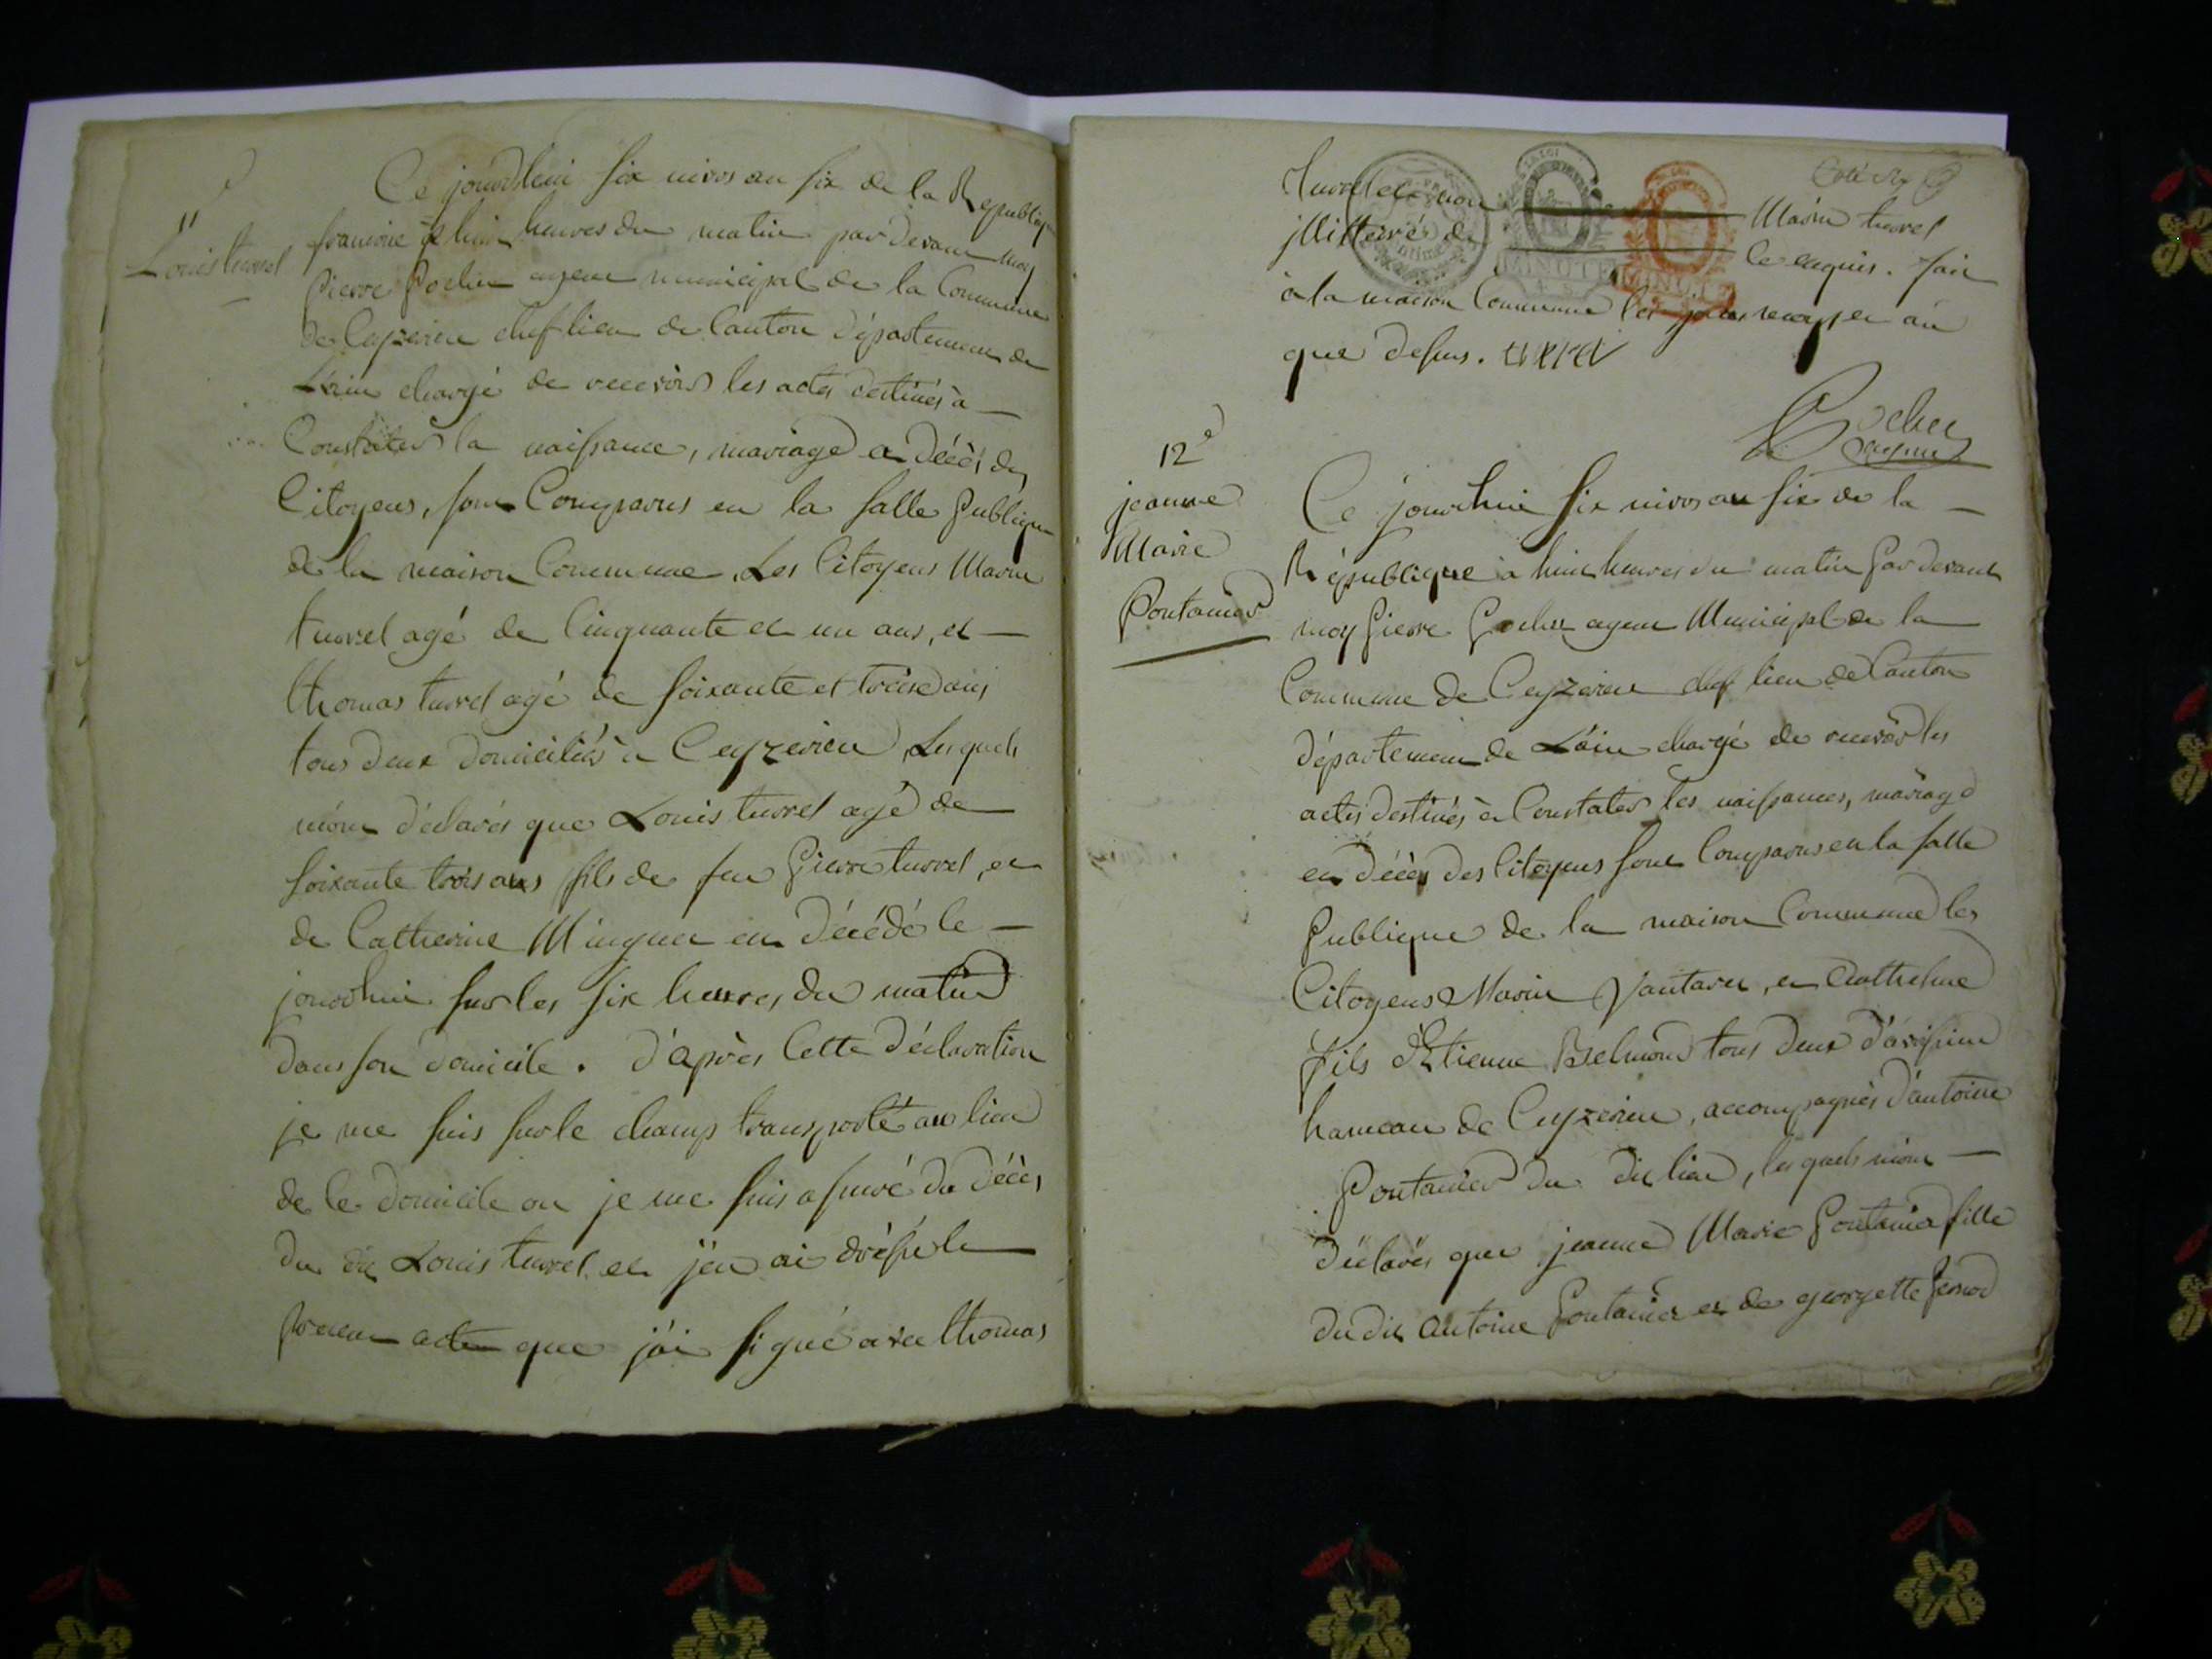 11e
Louis turrel
Ce jourdhui six nivos an six de la Republique
francoise à huit heures du matin par devant moy
Pierre Pochet agent municipal de la Commune
de Ceyzerieu chef lieu de Canton département de
L'ain chargé de recevoir les actes destinés à
Constater la naissance, mariage et décès des
Citoyens, sont Comparus en la salle publique
de la maison Commune, Les Citoyens Marin
turrel agé de Cinquante et un ans, et
thomas turrel agé de soixante et treise ans
tous deux domiciliés à Ceyzerieu, Lesquels
m'ont déclarés que Louis turrel agé de
soixante trois ans fils de feu Pierre turrel, et
de Catherine Minguet est décédé le
jourdhui sur les six heures du matin
dans son domicile. d'après Cette déclaration
je me suis sur le champ transporté au lieu
de le domicile ou je me suis assuré du décès
du dit Louis turrel et j'en ai dressé le
présent acte que j'ai signé avec thomas
turrel et non Marin turrel
illitteré de ce enquis. fait
à la maison Commune les jours mois et an
que dessus. turrel
Pochet
agent
12e
jeanne
Marie
Pontanier
Ce jourdhui six nivos an six de la
République à huit heures du matin par devant
moy Pierre Pochet agent Municipal de la
Commune de Ceyzerieu chef lieu de Canton
département de L'ain chargé de recevoir les
actes destinés à Constater les naissances, mariage
et décès des Citoyens sont Comparus en la salle
Publique de la maison Commune les
Citoyens Marin Vantaret, et Anthelme
fils d'Etienne Belmond tous deux d'avrissieu
hameau de Ceyzerieu, accompagnés d'antoine
Pontanier du dit lieu, lesquels m'ont
déclarés que jeanne Marie Pontanier fille
du dit antoine Pontanier et de georgette Pernod
MINUTE
MINUTE